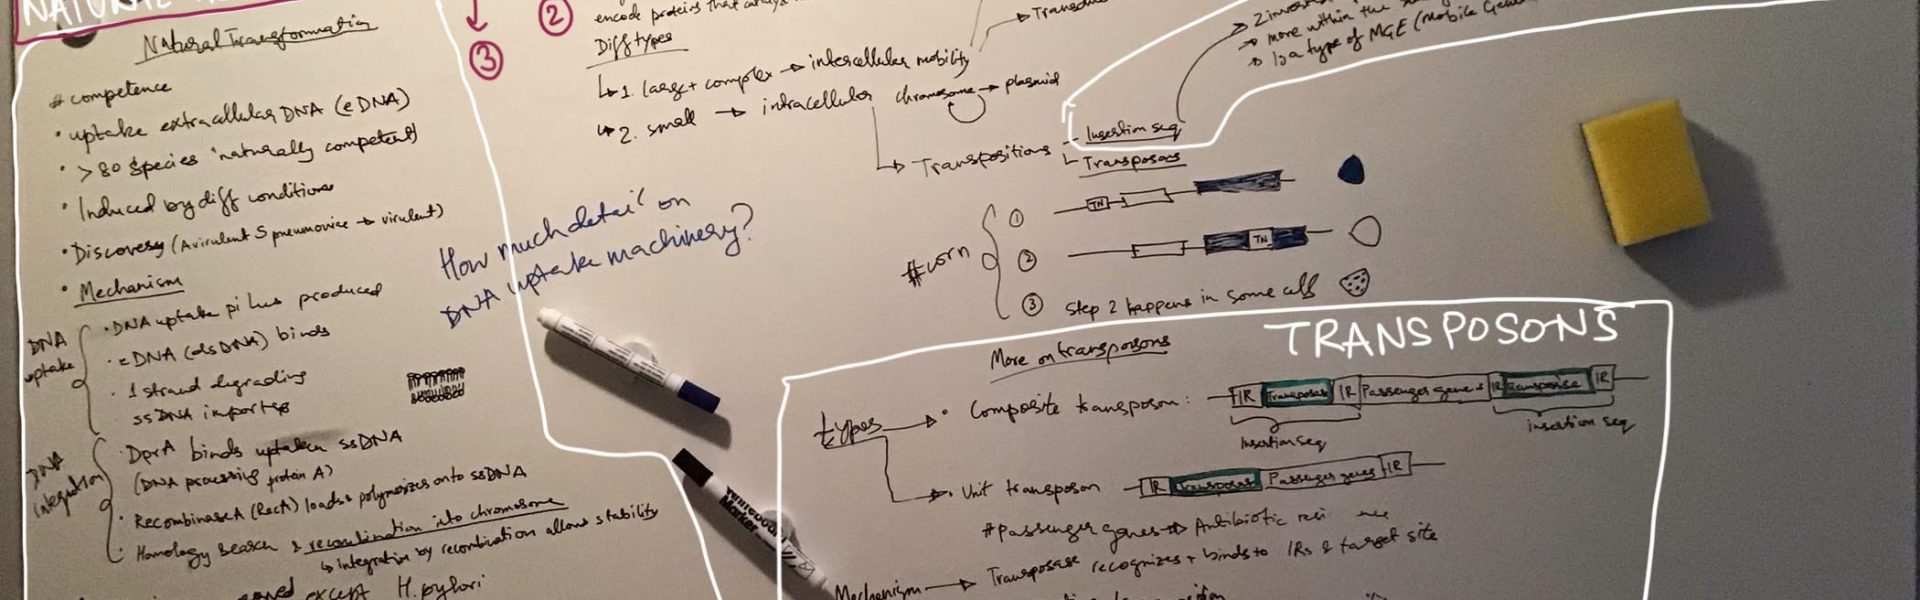 NATURAL
Natural Transformation
# competence
• uptake extracellular DNA (eDNA)
• > 80 species 'naturally competent'
• Induced by diff conditions
• Discovery (Avirulent S pneumoniae → virulent)
• Mechanism
DNA uptake
• DNA uptake pilus produced
• eDNA (dsDNA) binds
• 1 strand degrading
ssDNA imported
DNA integration
• DprA binds uptaken ssDNA
(DNA processing protein A)
• Recombinase A (RecA) loads & polymerizes onto ssDNA
• Homology search & recombination into chromosome
↳ integration by recombination allows stability
except H. pylori
③
②
encode proteins that
Diff types
↳ 1. large + complex → intercellular mobility
↳ 2. small → intracellular chromosome → plasmid
↳ Transpositions
Insertion seq
Transposons
→ more within the
→ Is a type of MGE (Mobile
How much detail on
DNA uptake machinery?
# corn
① TN
② TN
③ Step 2 happens in some cells
TRANSPOSONS
More on transposons
types → • Composite transposon: IR Transposase IR Passenger genes IR Transposase IR
Insertion seq
insertion seq
→ • Unit transposon IR Transposase Passenger genes IR
# passenger genes → Antibiotic
Mechanism → Transposase recognizes + binds to IRs & target site
Whiteboard
Marker